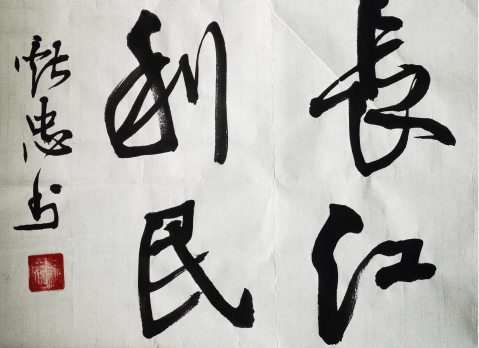 長江
利民
忠书